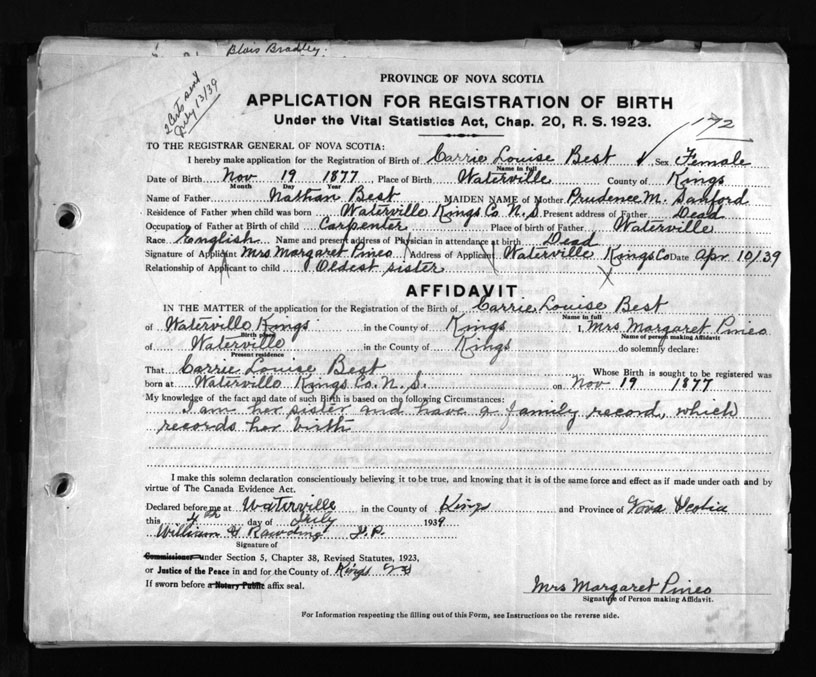 Blois Bradley.
PROVINCE OF NOVA SCOTIA
2 Certs sent
July 13/39
APPLICATION FOR REGISTRATION OF BIRTH
Under the Vital Statistics Act, Chap. 20, R. S. 1923.
172
TO THE REGISTRAR GENERAL OF NOVA SCOTIA:
I hereby make application for the Registration of Birth of Carrie Louise Best Sex Female
Name in full
Date of Birth Nov 19 1877 Place of Birth Waterville County of Kings
Month Day Year
Name of Father Nathan Best MAIDEN NAME of Mother Prudence M. Sanford
Residence of Father when child was born Waterville Kings Co. N. S. Present address of Father Dead
Occupation of Father at Birth of child Carpenter Place of birth of Father Waterville
Race English Name and present address of Physician in attendance at birth Dead
Signature of Applicant Mrs Margaret Pineo Address of Applicant Waterville Kings Co Date Apr 10/39
Relationship of Applicant to child Oldest sister
AFFIDAVIT
IN THE MATTER of the application for the Registration of the Birth of Carrie Louise Best
Name in full
of Waterville Kings in the County of Kings I, Mrs Margaret Pineo
Birth place Name of person making Affidavit
of Waterville in the County of Kings do solemnly declare:
Present residence
That Carrie Louise Best Whose Birth is sought to be registered was
born at Waterville Kings Co. N. S. on Nov 19 1877
My knowledge of the fact and date of such Birth is based on the following Circumstances:
I am her sister and have a family record, which
records her birth
I make this solemn declaration conscientiously believing it to be true, and knowing that it is of the same force and effect as if made under oath and by
virtue of The Canada Evidence Act.
Declared before me at Waterville in the County of Kings and Province of Nova Scotia
this 4th day of July 1939
William H Rawding J. P.
Signature of
Commissioner under Section 5, Chapter 38, Revised Statutes, 1923,
or Justice of the Peace in and for the County of Kings NS
If sworn before a Notary Public affix seal.
Mrs Margaret Pineo
Signature of Person making Affidavit.
For Information respecting the filling out of this Form, see Instructions on the reverse side.